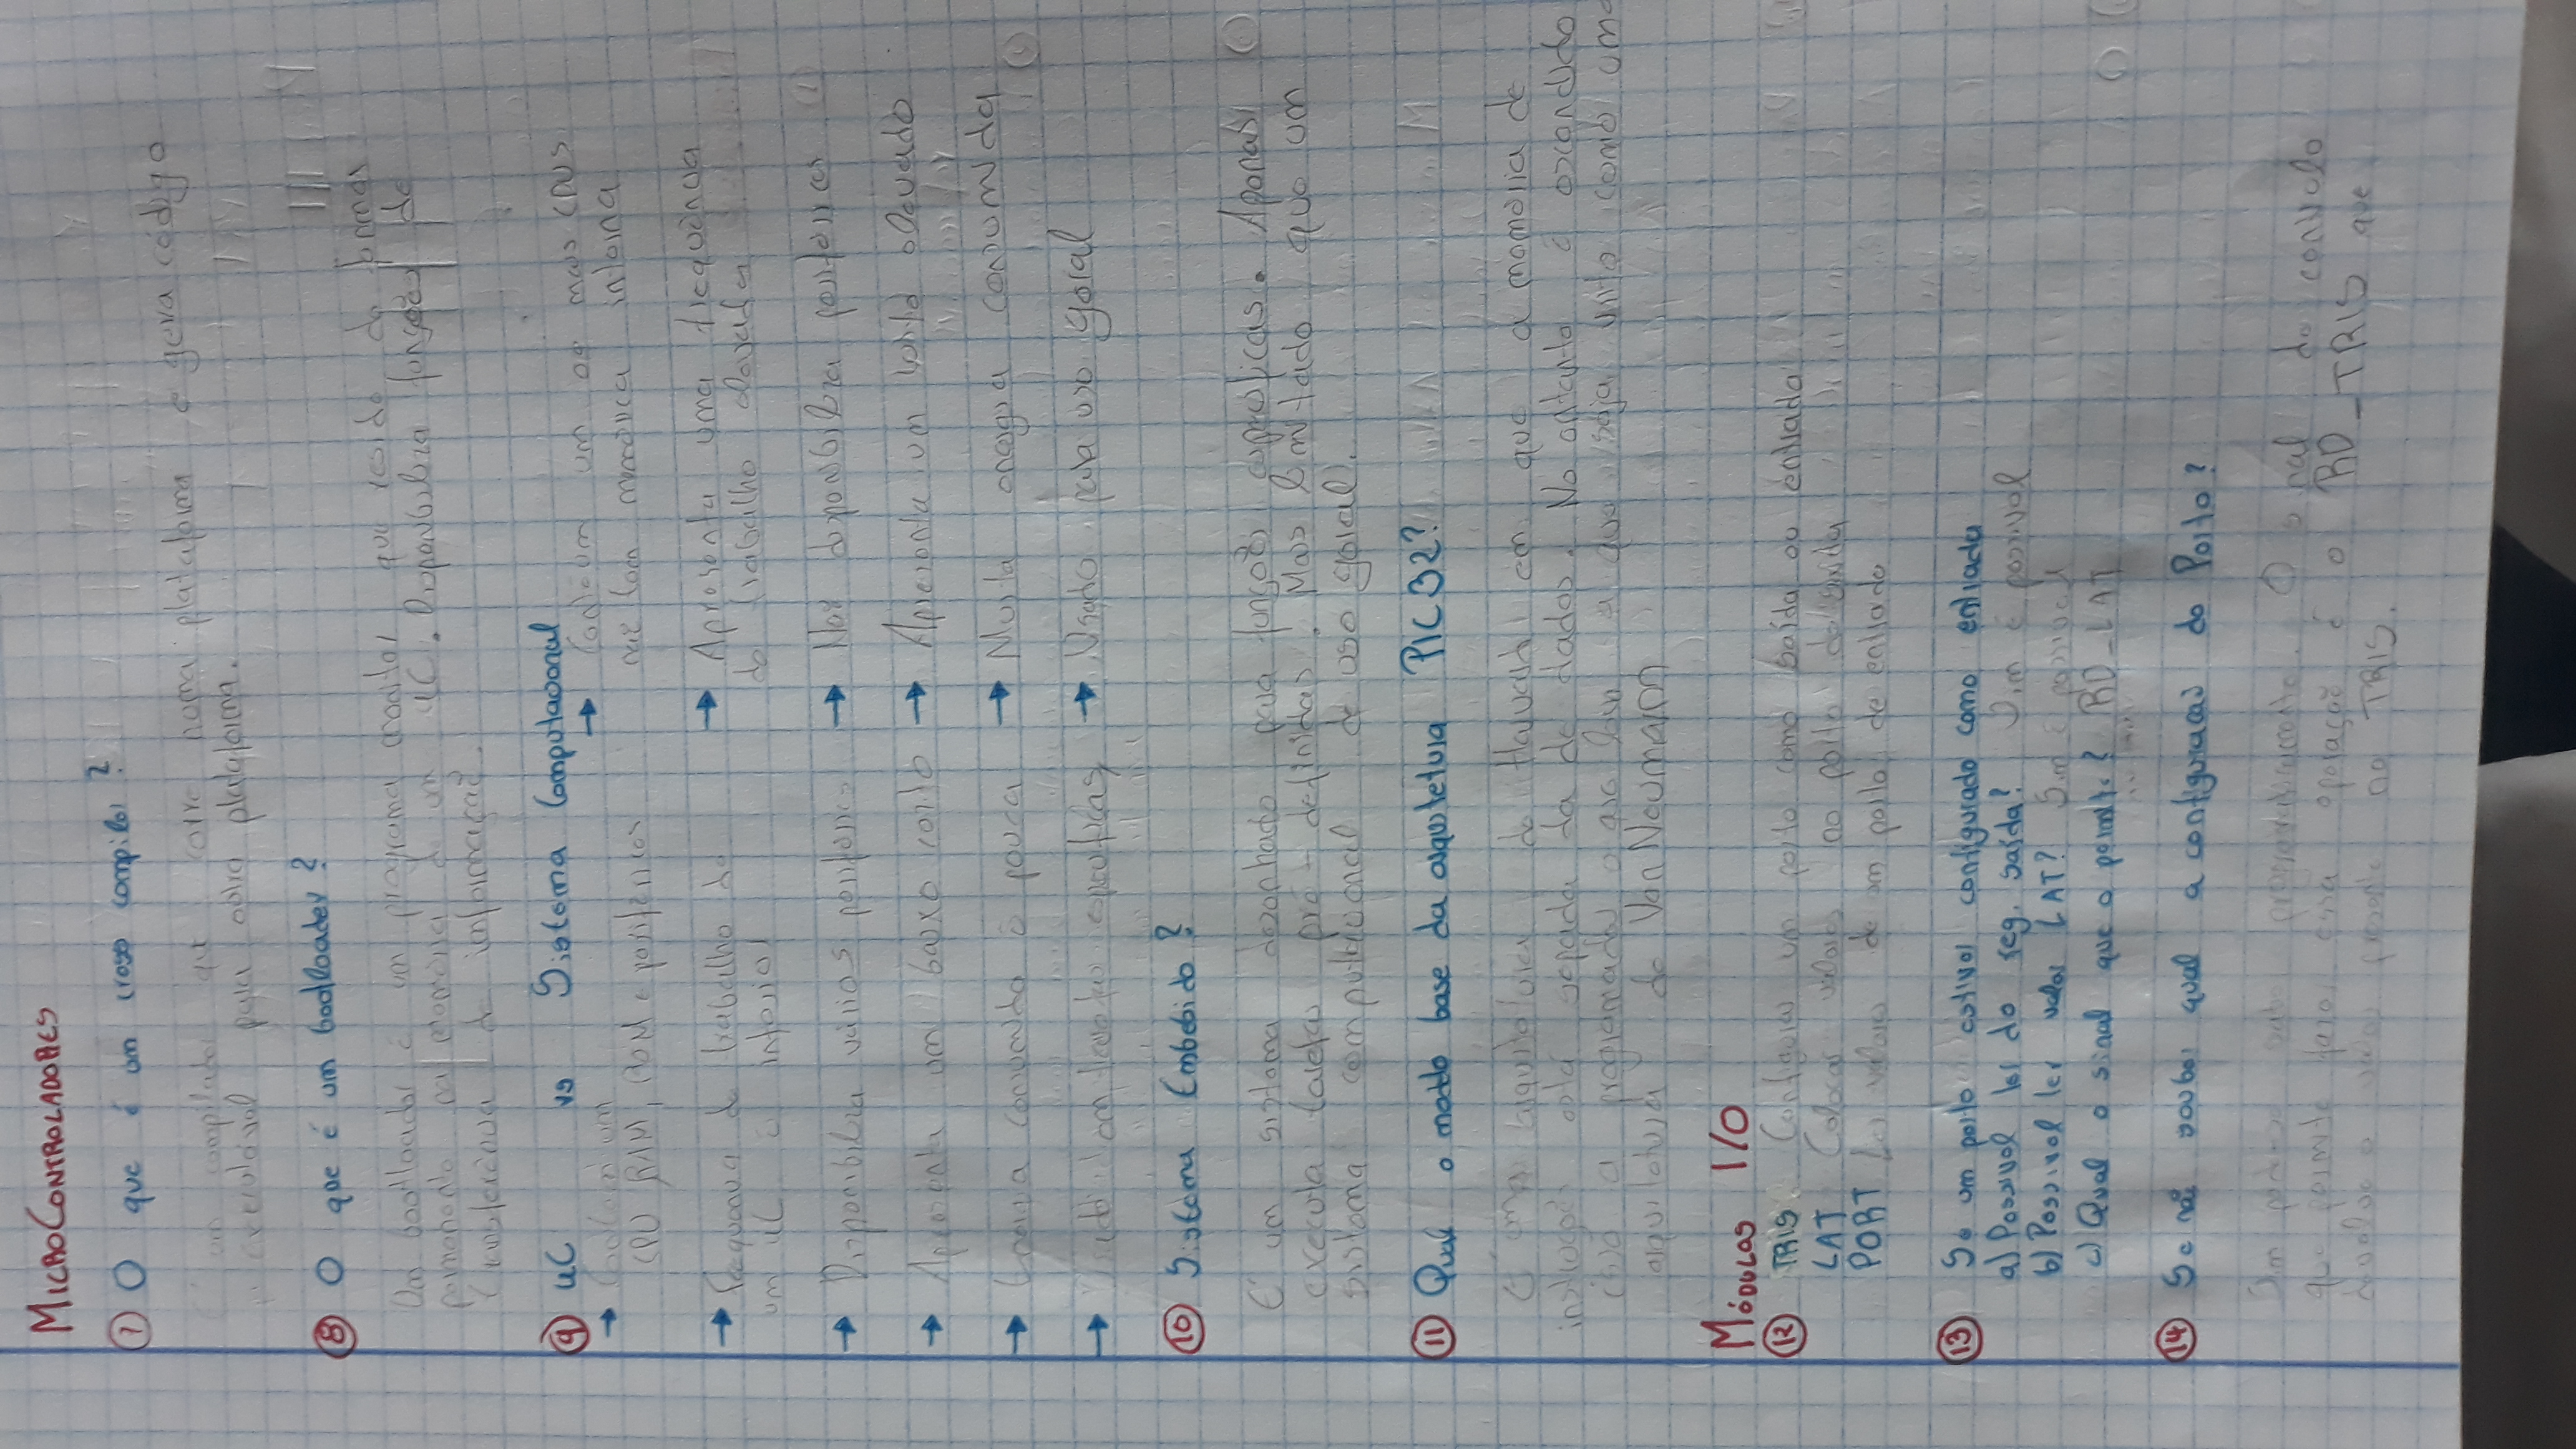 MICROCONTROLADORES
7 O que é um cross compiler?
um compilador que corre numa plataforma e gera código
executável para outra plataforma.
8 O que é um bootloader?
Um bootloader é um programa monitor que reside de forma
permanente na memória de um uC. Disponibiliza funções de
transferência de informação.
9 uC vs Sistema Computacional
→ um → um ou mais CPUs
CPU RAM, ROM e periféricos não tem memória interna
→ Frequência de trabalho de → Apresenta uma frequência
um uC é inferior de trabalho elevada
→ Disponibiliza vários periféricos → Não disponibiliza periféricos
→ Apresenta um baixo custo → Apresenta um custo elevado
→ Energia consumida é pouca → Muita energia consumida
→ em tarefas específicas → Usado para uso geral
10 Sistema Embebido?
É um sistema desenhado para funções específicas. Apenas
executa tarefas pré-definidas. Mais limitado que um
sistema computacional de uso geral.
11 Qual o modelo base da arquitetura PIC32?
É uma arquitetura de Harvard em que a memória de
instruções está separada da de dados. No entanto é escondido
a que seja visto como uma
arquitetura de Von Neumann
MÓDULOS I/O
12 TRIS Configurar um porto como saída ou entrada
LAT Colocar valores no porto de saída
PORT Ler valores de um porto de entrada
13 Se um porto estiver configurado como entrada
a) Possivel ler do reg. saída? Sim é possivel
b) Possivel ler valor LAT? Sim é possivel
c) Qual o sinal que o permite? RD_LAT
14 Se não souber qual a configuração do Porto?
Sim podemos saber programaticamente. O sinal de controlo
que permite fazer essa operação é o RD_TRIS que
o valor presente no TRIS.